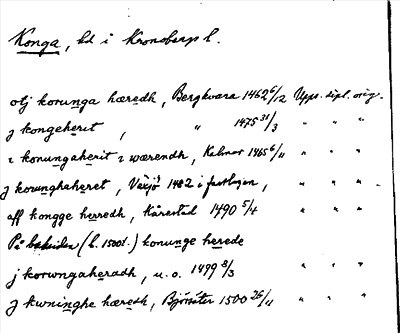 Konga, hd i Kronobergs l.
otj konunga hæredh, Bergkvara 1462 6/12 Upps. dipl. orig.
j kongeherit, " 1475 31/3 " " "
i konungaherit i wærendh, Kalmar 1465 6/11 " " "
j konunghaheret, Växjö 1482 i fastlagen, " " "
aff kongge herredh, Kårestad 1490 5/4 " " "
På baksidan (h. 1500t.) konunge herede
j konwngaheradh, u.o. 1499 3/3 " " "
j kwninghe hæredh, Bjärsäter 1500 26/11 " " "